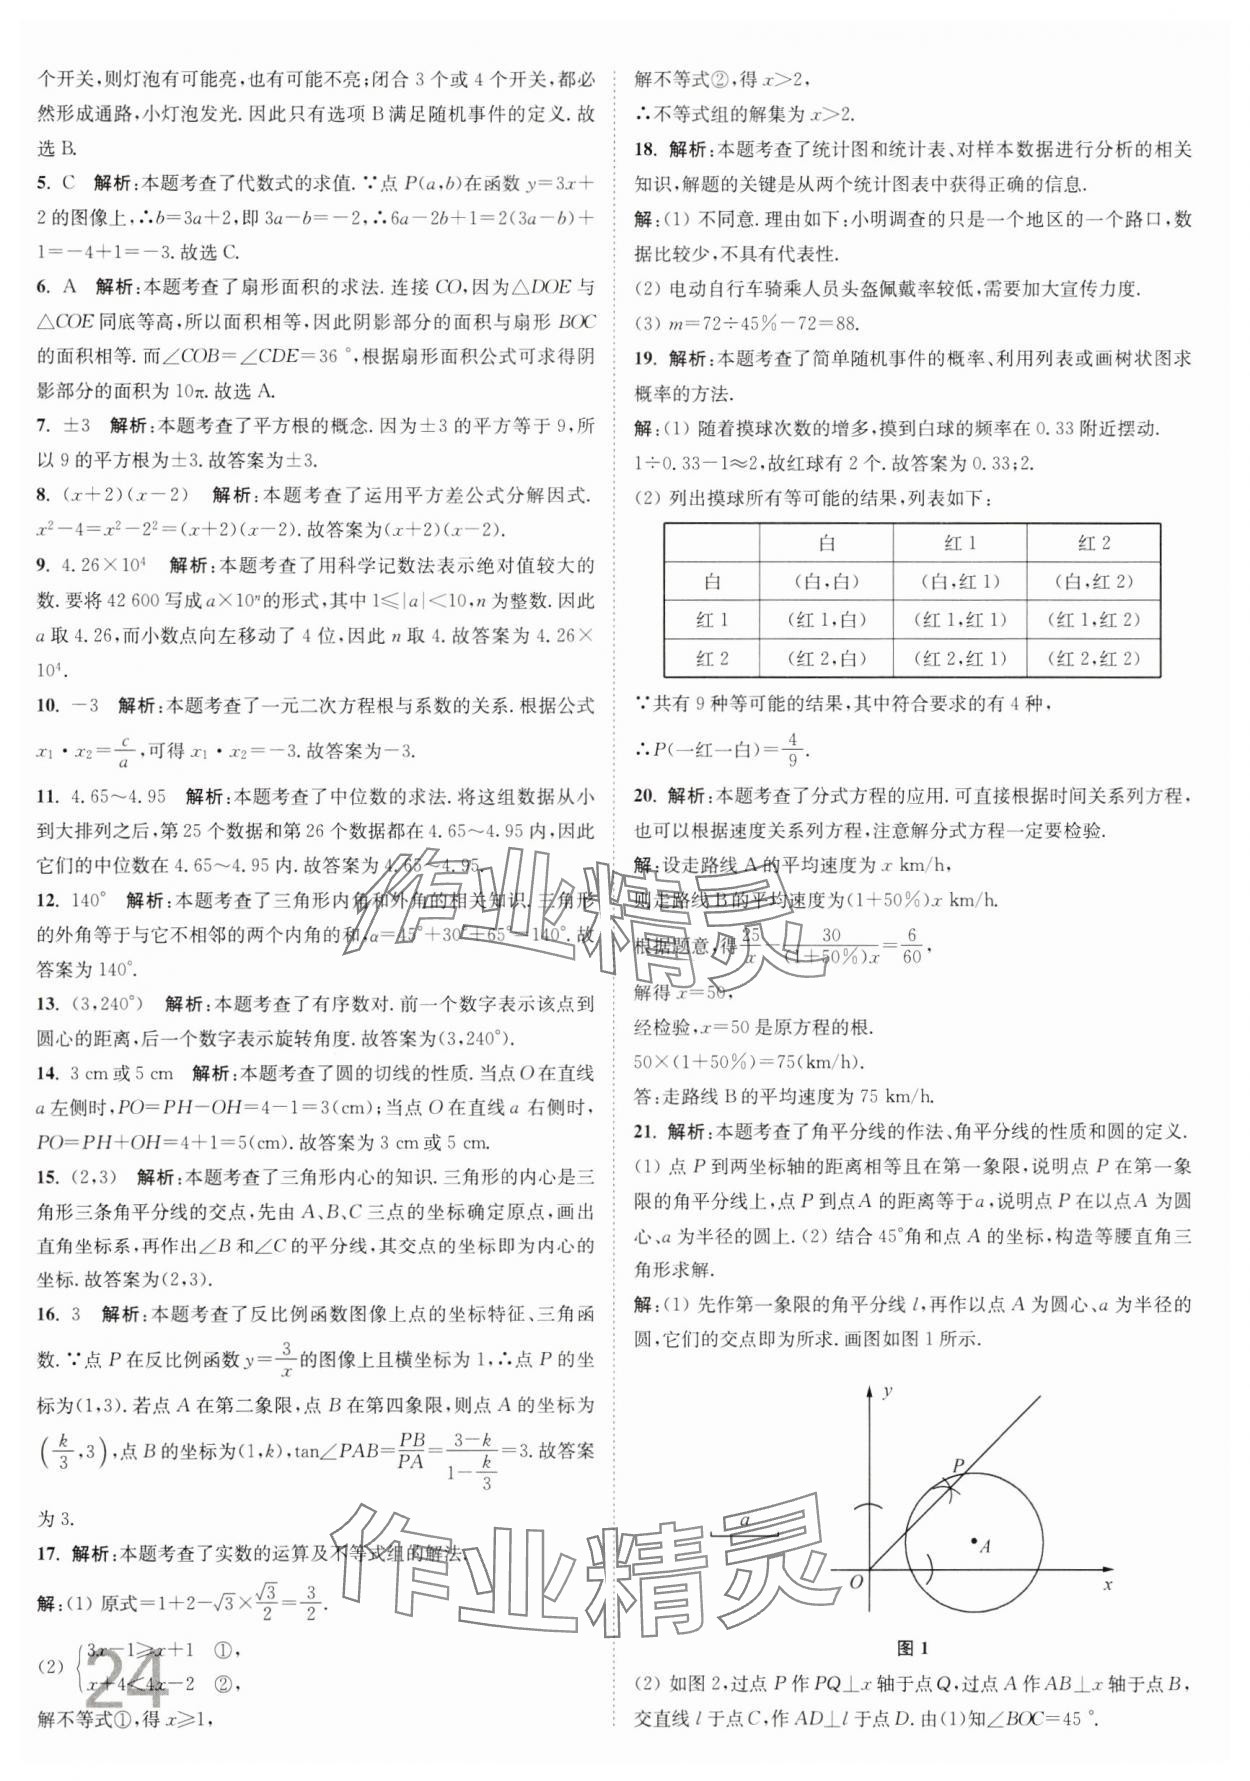 个开关,则灯泡有可能亮,也有可能不亮;闭合 3 个或 4 个开关,都必
然形成通路,小灯泡发光. 因此只有选项 B 满足随机事件的定义. 故
选 B.
5. C 解析:本题考查了代数式的求值. ∵点 P(a,b)在函数 y=3x+
2 的图像上,∴b=3a+2,即 3a-b=-2,∴6a-2b+1=2(3a-b)+
1=-4+1=-3. 故选 C.
6. A 解析:本题考查了扇形面积的求法. 连接 CO,因为△DOE 与
△COE 同底等高,所以面积相等,因此阴影部分的面积与扇形 BOC
的面积相等. 而∠COB=∠CDE=36 °,根据扇形面积公式可求得阴
影部分的面积为 10π. 故选 A.
7. ±3 解析:本题考查了平方根的概念. 因为±3 的平方等于 9,所
以 9 的平方根为±3. 故答案为±3.
8. (x+2)(x-2) 解析:本题考查了运用平方差公式分解因式.
x²-4=x²-2²=(x+2)(x-2). 故答案为(x+2)(x-2).
9. 4.26×10⁴ 解析:本题考查了用科学记数法表示绝对值较大的
数. 要将 42 600 写成 a×10ⁿ的形式,其中 1≤|a|<10,n 为整数. 因此
a 取 4.26,而小数点向左移动了 4 位,因此 n 取 4. 故答案为 4.26×
10⁴.
10. -3 解析:本题考查了一元二次方程根与系数的关系. 根据公式
x₁·x₂=c/a,可得 x₁·x₂=-3. 故答案为-3.
11. 4.65~4.95 解析:本题考查了中位数的求法. 将这组数据从小
到大排列之后,第 25 个数据和第 26 个数据都在 4.65~4.95 内,因此
它们的中位数在 4.65~4.95 内. 故答案为 4.65~4.95.
12. 140° 解析:本题考查了三角形内角和外角的相关知识. 三角形
的外角等于与它不相邻的两个内角的和,α=45°+30°+65°=140°. 故
答案为 140°.
13. (3,240°) 解析:本题考查了有序数对. 前一个数字表示该点到
圆心的距离,后一个数字表示旋转角度. 故答案为(3,240°).
14. 3 cm 或 5 cm 解析:本题考查了圆的切线的性质. 当点 O 在直线
a 左侧时,PO=PH-OH=4-1=3(cm);当点 O 在直线 a 右侧时,
PO=PH+OH=4+1=5(cm). 故答案为 3 cm 或 5 cm.
15. (2,3) 解析:本题考查了三角形内心的知识. 三角形的内心是三
角形三条角平分线的交点,先由 A、B、C 三点的坐标确定原点,画出
直角坐标系,再作出∠B 和∠C 的平分线,其交点的坐标即为内心的
坐标. 故答案为(2,3).
16. 3 解析:本题考查了反比例函数图像上点的坐标特征、三角函
数. ∵点 P 在反比例函数 y=3/x的图像上且横坐标为 1,∴点 P 的坐
标为(1,3). 若点 A 在第二象限,点 B 在第四象限,则点 A 的坐标为
(k/3,3),点 B 的坐标为(1,k),tan∠PAB=PB/PA=(3-k)/(1-k/3)=3. 故答案
为 3.
17. 解析:本题考查了实数的运算及不等式组的解法.
解:(1) 原式=1+2-√3×√3/2=3/2.
(2) {3x-1≥x+1 ①,
x+4<4x-2 ②,
解不等式①,得 x≥1,
24
解不等式②,得 x>2,
∴不等式组的解集为 x>2.
18. 解析:本题考查了统计图和统计表、对样本数据进行分析的相关
知识,解题的关键是从两个统计图表中获得正确的信息.
解:(1) 不同意. 理由如下:小明调查的只是一个地区的一个路口,数
据比较少,不具有代表性.
(2) 电动自行车骑乘人员头盔佩戴率较低,需要加大宣传力度.
(3) m=72÷45%-72=88.
19. 解析:本题考查了简单随机事件的概率、利用列表或画树状图求
概率的方法.
解:(1) 随着摸球次数的增多,摸到白球的频率在 0.33 附近摆动.
1÷0.33-1≈2,故红球有 2 个. 故答案为 0.33;2.
(2) 列出摸球所有等可能的结果,列表如下:
白 红 1 红 2
白 (白,白) (白,红 1) (白,红 2)
红 1 (红 1,白) (红 1,红 1) (红 1,红 2)
红 2 (红 2,白) (红 2,红 1) (红 2,红 2)
∵共有 9 种等可能的结果,其中符合要求的有 4 种,
∴P(一红一白)=4/9.
20. 解析:本题考查了分式方程的应用. 可直接根据时间关系列方程,
也可以根据速度关系列方程,注意解分式方程一定要检验.
解:设走路线 A 的平均速度为 x km/h,
则走路线 B 的平均速度为(1+50%)x km/h.
根据题意,得25/x-30/(1+50%)x=6/60,
解得 x=50,
经检验,x=50 是原方程的根.
50×(1+50%)=75(km/h).
答:走路线 B 的平均速度为 75 km/h.
21. 解析:本题考查了角平分线的作法、角平分线的性质和圆的定义.
(1) 点 P 到两坐标轴的距离相等且在第一象限,说明点 P 在第一象
限的角平分线上,点 P 到点 A 的距离等于 a,说明点 P 在以点 A 为圆
心、a 为半径的圆上. (2) 结合 45°角和点 A 的坐标,构造等腰直角三
角形求解.
解:(1) 先作第一象限的角平分线 l,再作以点 A 为圆心、a 为半径的
圆,它们的交点即为所求. 画图如图 1 所示.
y
P
a
A
O
x
图 1
(2) 如图 2,过点 P 作 PQ⊥x 轴于点 Q,过点 A 作 AB⊥x 轴于点 B,
交直线 l 于点 C,作 AD⊥l 于点 D. 由(1)知∠BOC=45 °.
作业精灵
作业精灵